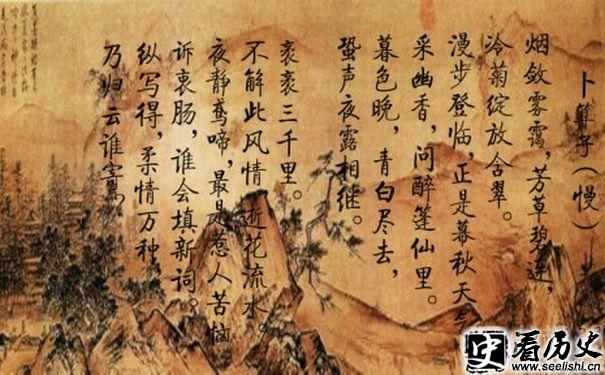 卜算子(慢)
烟敛雾霭,芳草碧连,
冷菊绽放含翠。
漫步登临,正是暮秋天气
采幽香,问醉篷仙里。
暮色晚,青白尽去,
蛩声夜露相继。
衮衮三千里。
不解此风情 逝花流水。
夜静鸯啼,最是惹人苦恼
诉衷肠,谁会填新词。
纵写得,柔情万种
乃归云谁寄?
看历史
www.seelishi.cn